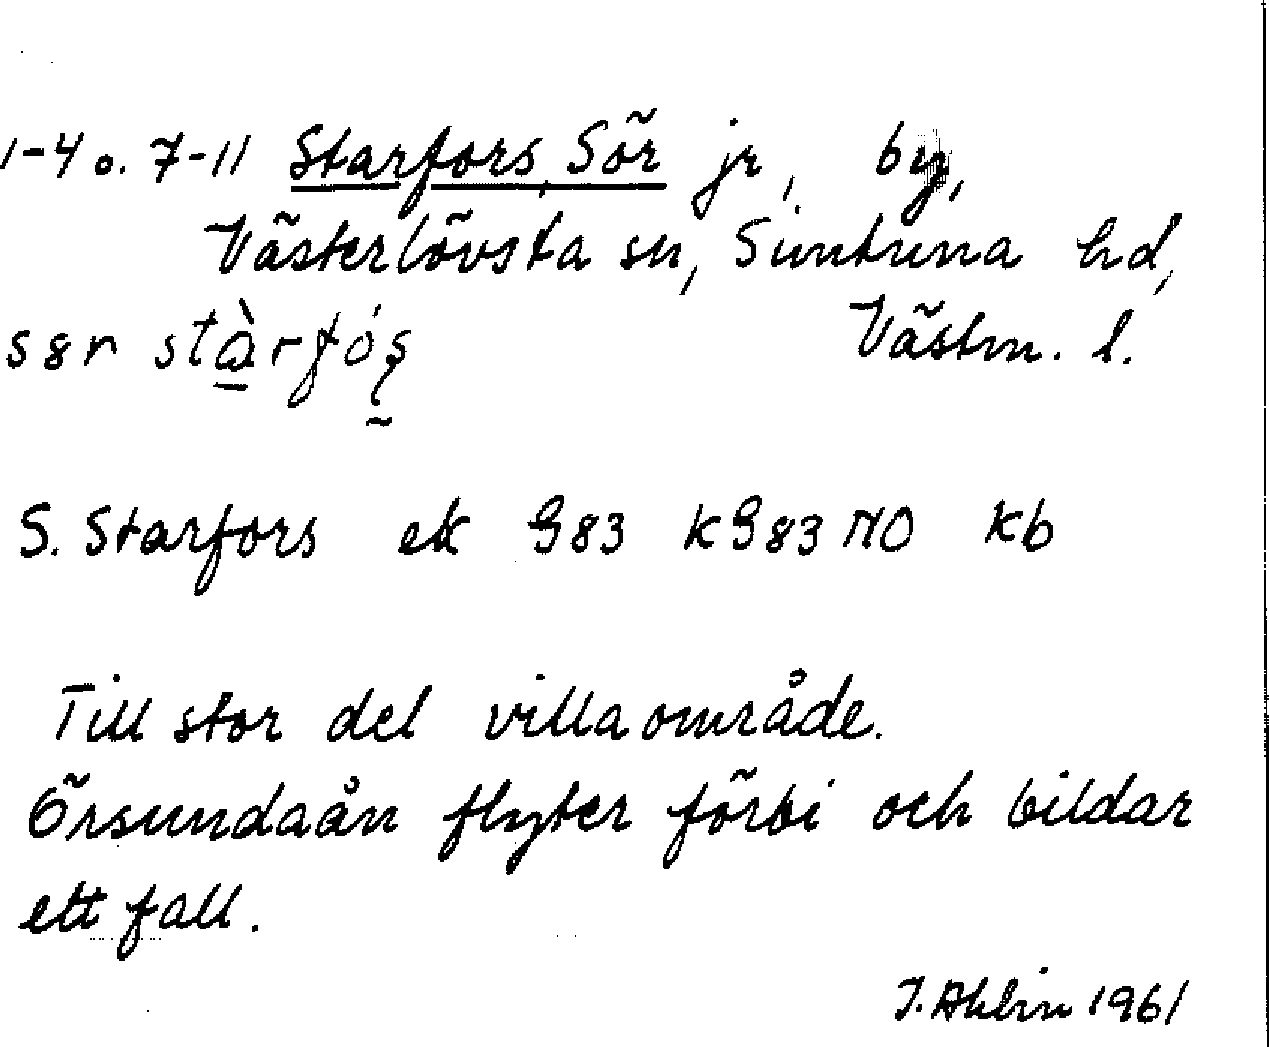 1-4 o. 7-11 Starfors, Sör jr, by,
Västerlövsta sn, Simtuna hd,
Västm. l.
S. Starfors ek G83 kG83 NO Kb
Till stor del villaområde.
Örsundaån flyter förbi och bildar
ett fall.
J. Ahlin 1961